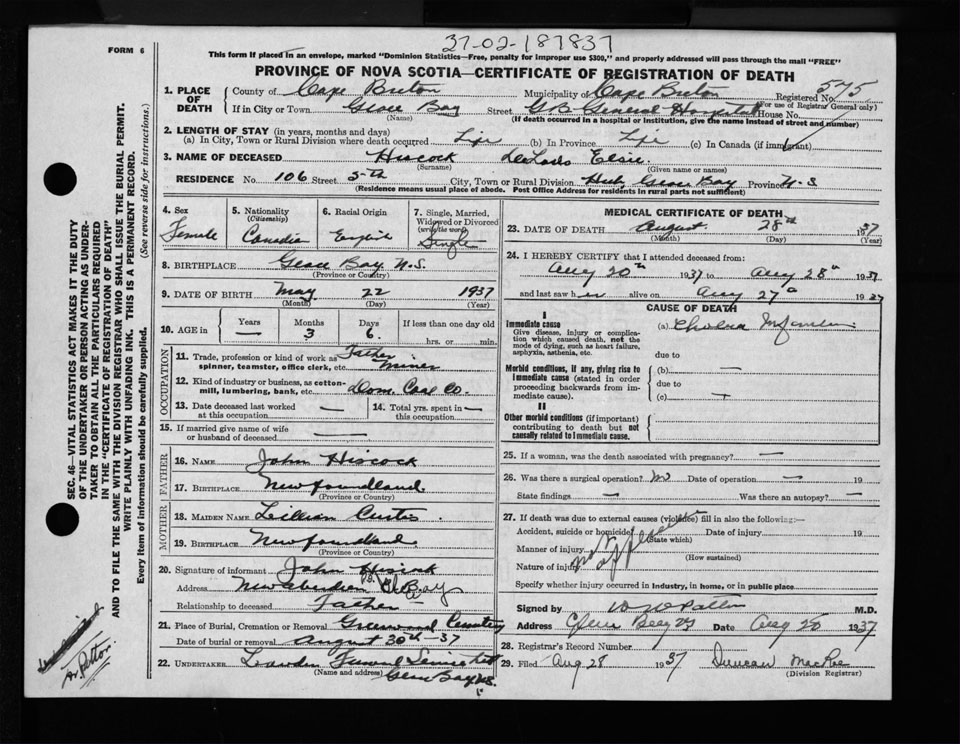 37-02-187837
FORM 6
This form if placed in an envelope, marked "Dominion Statistics—Free, penalty for improper use $300," and properly addressed will pass through the mail "FREE"
PROVINCE OF NOVA SCOTIA—CERTIFICATE OF REGISTRATION OF DEATH
1. PLACE OF DEATH
County of Cape Breton Municipality of Cape Breton Registered No. 575
(For use of Registrar General only)
If in City or Town Glace Bay Street G.B. General Hospital House No.
(Name) (If death occurred in a hospital or institution, give the name instead of street and number)
2. LENGTH OF STAY (in years, months and days)
(a) In City, Town or Rural Division where death occurred Life (b) In Province Life (c) In Canada (if immigrant)
3. NAME OF DECEASED Hiscock Elsie
(Surname) (Given name or names)
RESIDENCE No. 106 Street 5th City, Town or Rural Division Hub, Glace Bay Province N.S
(Residence means usual place of abode. Post Office Address for residents in rural parts not sufficient)
4. Sex Female
5. Nationality (Citizenship) Canadian
6. Racial Origin English
7. Single, Married, Widowed or Divorced (write the word) Single
8. BIRTHPLACE Glace Bay, N.S.
(Province or Country)
9. DATE OF BIRTH May 22 1937
(Month) (Day) (Year)
10. AGE in Years — Months 3 Days 6. If less than one day
hrs. or min.
OCCUPATION
11. Trade, profession or kind of work as spinner, teamster, office clerk, etc. Father miner
12. Kind of industry or business, as cotton-mill, lumbering, bank, etc. Dom. Coal Co.
13. Date deceased last worked at this occupation — 14. Total yrs. spent in this occupation —
15. If married give name of wife or husband of deceased —
FATHER
16. NAME John Hiscock
17. BIRTHPLACE Newfoundland
(Province or Country)
MOTHER
18. MAIDEN NAME Lillian Curtis.
19. BIRTHPLACE Newfoundland
(Province or Country)
20. Signature of informant John Hiscock
Address New Aberdeen G. Bay
Relationship to deceased Father
21. Place of Burial, Cremation or Removal Greenwood Cemetery
Date of burial or removal August 30th -37
22. UNDERTAKER Funeral Service Ltd
(Name and address) Glace Bay N.S.
MEDICAL CERTIFICATE OF DEATH
23. DATE OF DEATH August 28th 1937
(Month) (Day) (Year)
24. I HEREBY CERTIFY that I attended deceased from:
Aug 20th 1937 to Aug 28th 1937
and last saw her alive on Aug 27th 1937
CAUSE OF DEATH
I
Immediate cause (a) Cholera Infantum
Give disease, injury or complication which caused death, not the mode of dying, such as heart failure, asphyxia, asthenia, etc. due to
Morbid conditions, if any, giving rise to immediate cause (stated in order proceeding backwards from immediate cause). (b) —
due to
(c) —
II
Other morbid conditions (if important) contributing to death but not causally related to immediate cause.
25. If a woman, was the death associated with pregnancy? —
26. Was there a surgical operation? no Date of operation — 19
State findings — Was there an autopsy? —
27. If death was due to external causes (violence) fill in also the following:—
Accident, suicide or homicide? Date of injury 19
(State which)
Manner of injury
(How sustained)
Nature of injury
Specify whether injury occurred in industry, in home, or in public place
Signed by M.D.
Address Glace Bay NS Date Aug 28 1937
28. Registrar's Record Number
29. Filed Aug 28 1937 Duncan MacRae
(Division Registrar)
SEC. 46—VITAL STATISTICS ACT MAKES IT THE DUTY
OF THE UNDERTAKER OR PERSON ACTING AS UNDERTAKER TO OBTAIN ALL THE PARTICULARS REQUIRED
IN THE "CERTIFICATE OF REGISTRATION OF DEATH"
AND TO FILE THE SAME WITH THE DIVISION REGISTRAR WHO SHALL ISSUE THE BURIAL PERMIT.
WRITE PLAINLY WITH UNFADING INK. THIS IS A PERMANENT RECORD.
Every item of information should be carefully supplied. (See reverse side for instructions.)